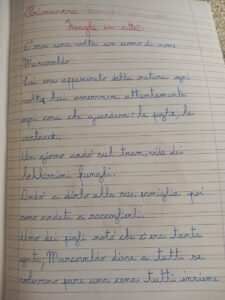 Primavera
Funghi in città
C'era una volta un uomo di nome
Marcovaldo.
Lui era appassionato della natura ogni
volta lui osservava attentamente
ogni cosa che guardava: le foglie, le
cortecce.
Un giorno andò sul tram, vide dei
bellissimi funghi.
Andò a dirlo alla sua famiglia poi
sono andati a raccoglierli.
Uno dei figli notò che c'era tanta
gente, Marcovaldo disse a tutti se
volevano fare una cena tutti insieme